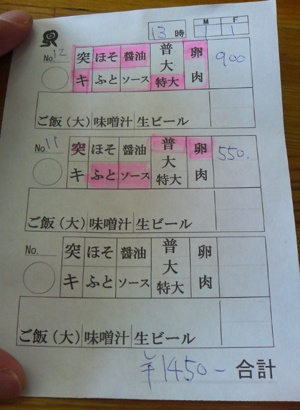 13時 M F
1 1
No. 12 突 ほそ 醤油 普 卵 900
大
キ ふと ソース 特大 肉
ご飯(大) 味噌汁 生ビール
No. 11 突 ほそ 醤油 普 卵 550.
大
キ ふと ソース 特大 肉
ご飯(大) 味噌汁 生ビール
No. 突 ほそ 醤油 普 卵
大
キ ふと ソース 特大 肉
ご飯(大) 味噌汁 生ビール
¥1450- 合計